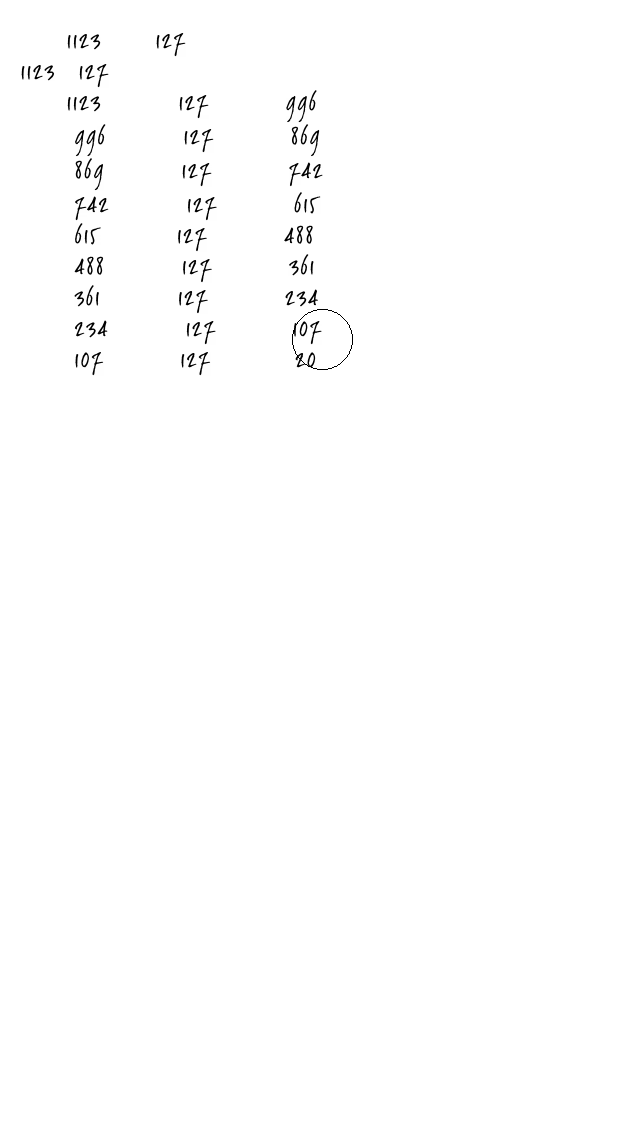 1123 127
1123 127
1123 127 996
996 127 869
869 127 742
742 127 615
615 127 488
488 127 361
361 127 234
234 127 107
107 127 20